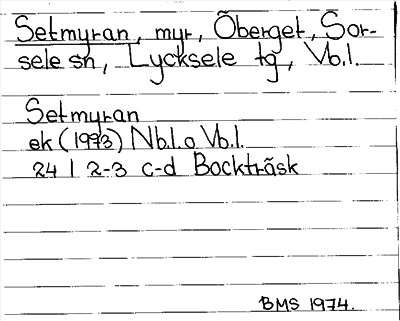 Setmyran, myr, Öberget, Sor-
sele sn, Lycksele tg, Vb.l.
Setmyran
ek (1973) Nb.l.o Vb.l.
24 I 2-3 c-d Bockträsk
BMS 1974.